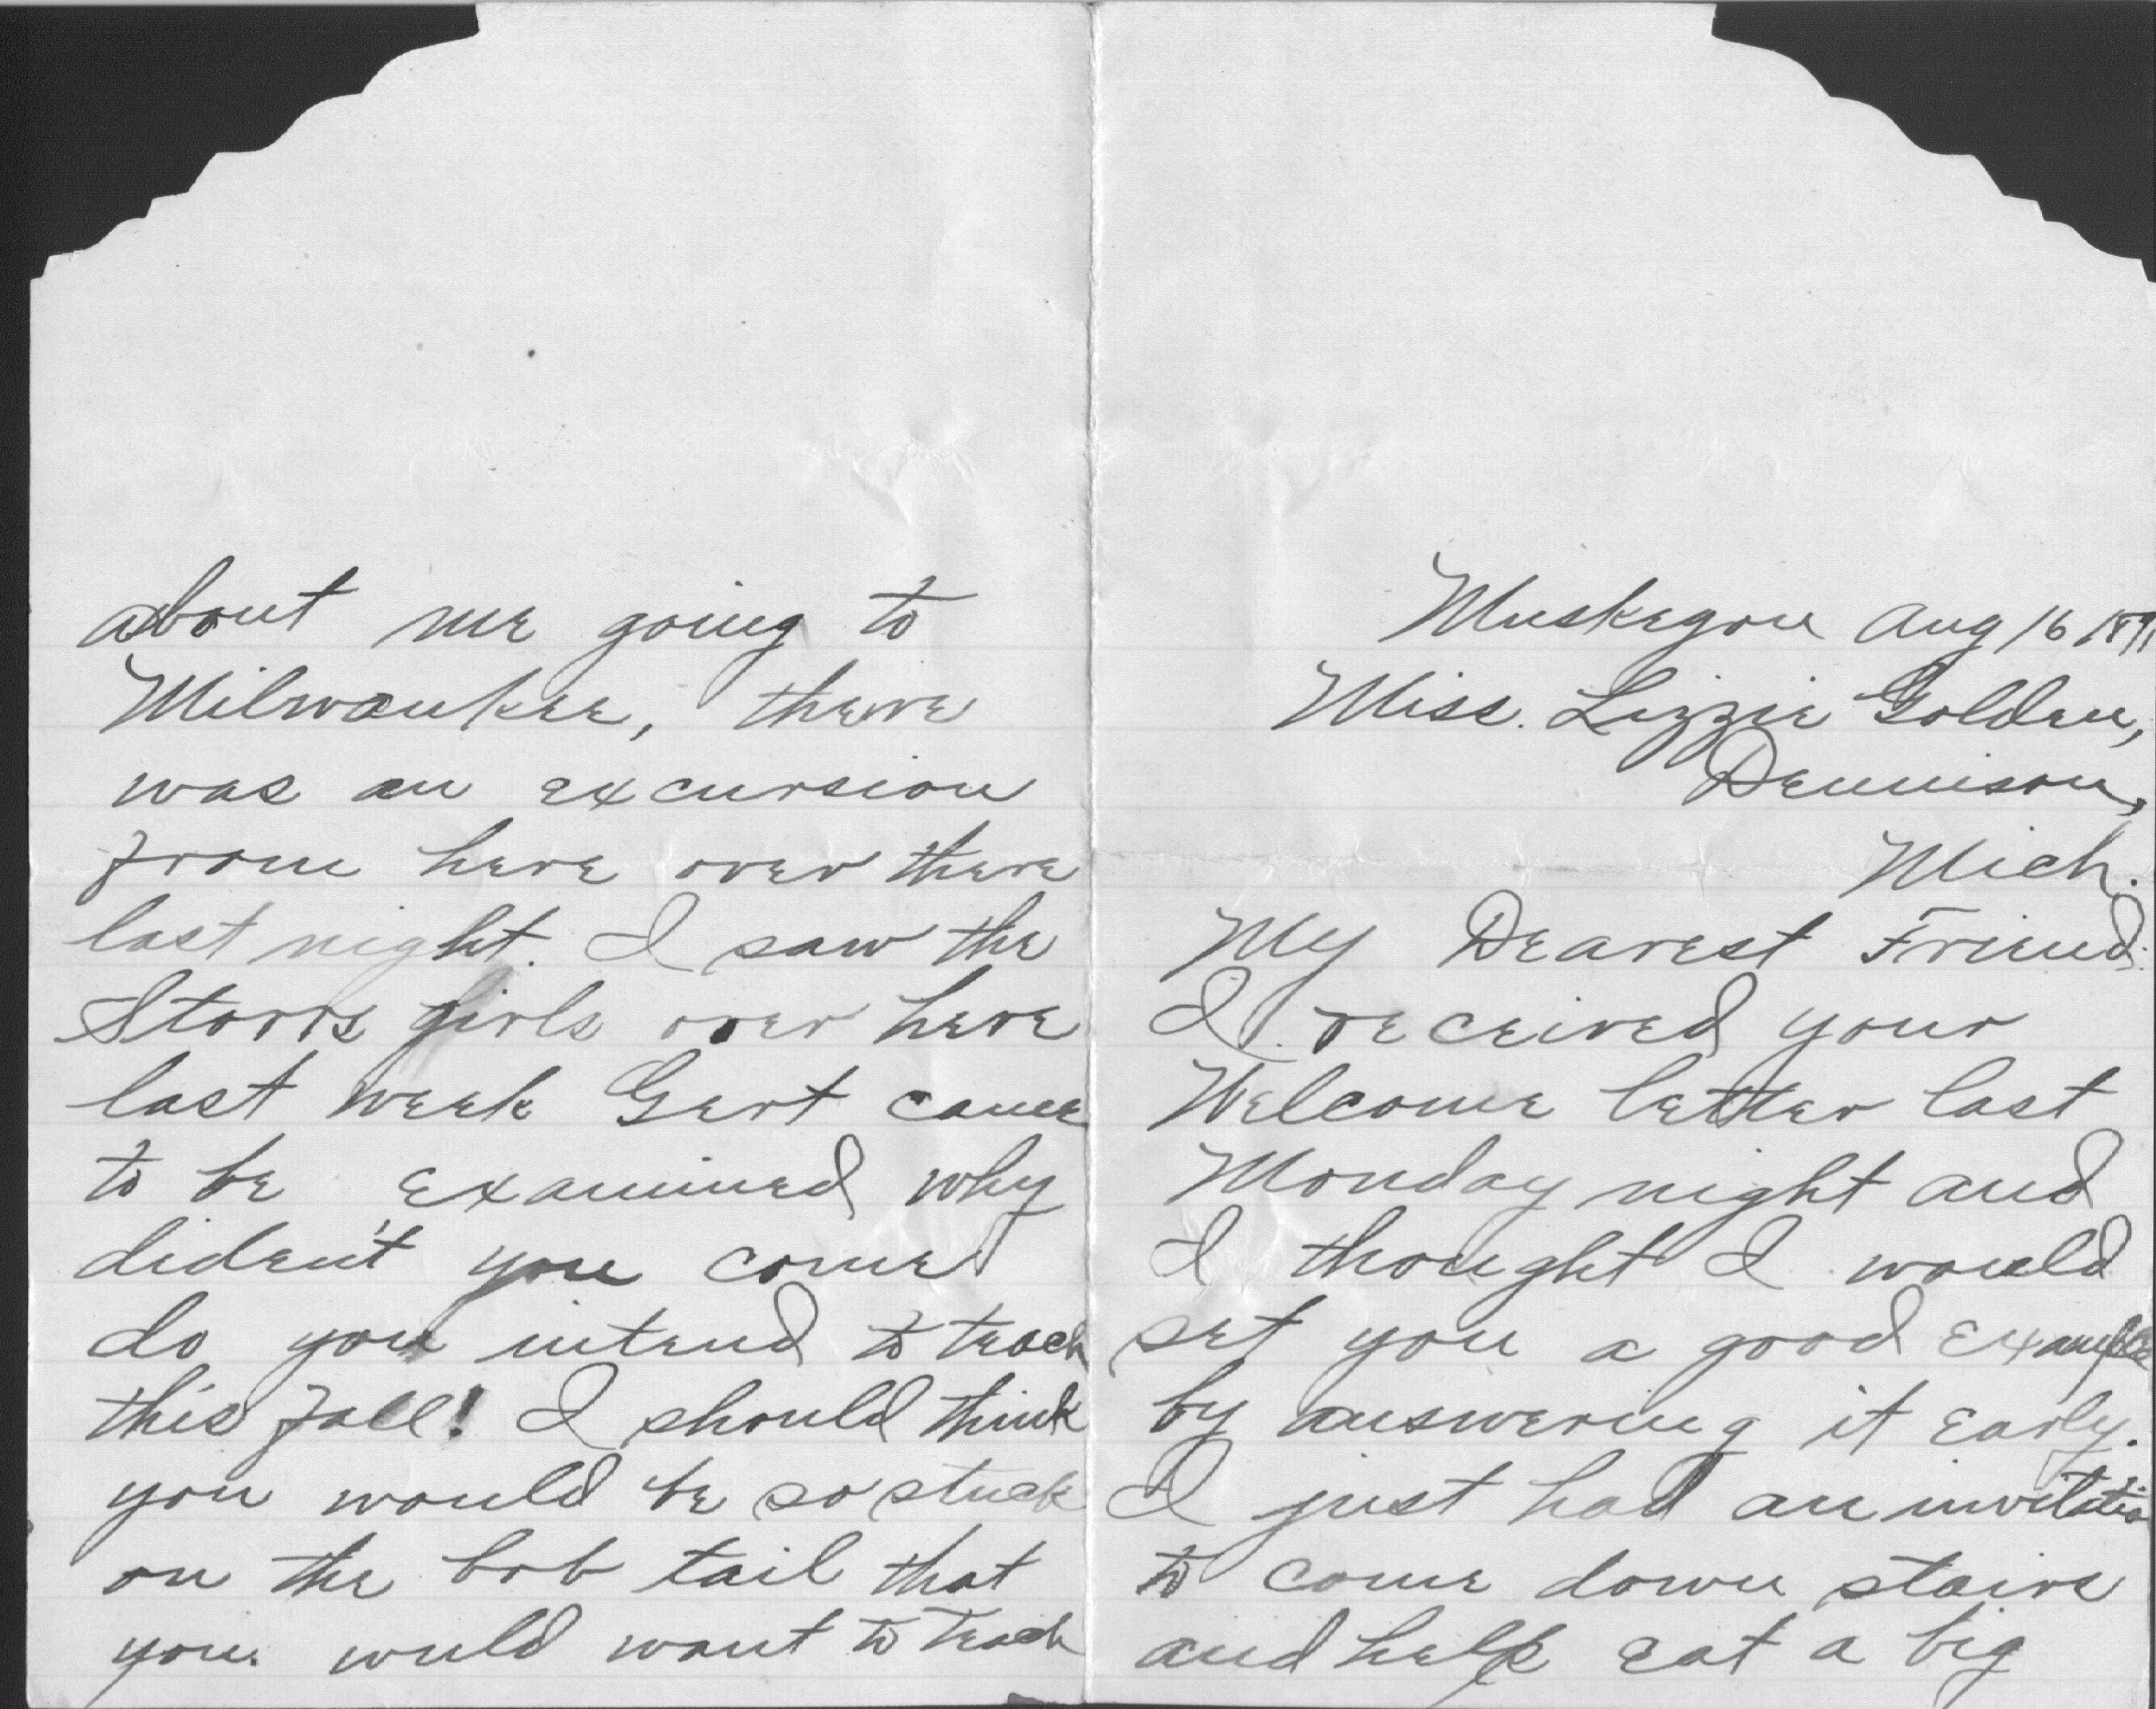 Muskegon Aug 16 1891
Miss. Lizzie Golden,
Dennison,
Mich.
My Dearest Friend:
I received your
Welcome letter last
Monday night and
I thought I would
set you a good example
by answering it early.
I just had an invitatio
to come down stairs
and help eat a big
about me going to
Milwaukee, there
was an excursion
from here over there
last night. I saw the
Storrs girls over here
last week Gert came
to be examined why
dident you come
do you intend to teach
this fall! I should think
you would be so stuck
on the bob tail that
you wuld want to teach